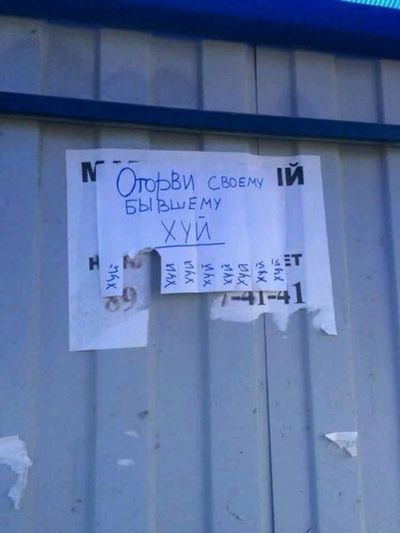 Оторви своему
бывшему
хуй
хуй хуй хуй хуй хуй хуй хуй хуй
ИЙ
ЕТ
89
7-41-41